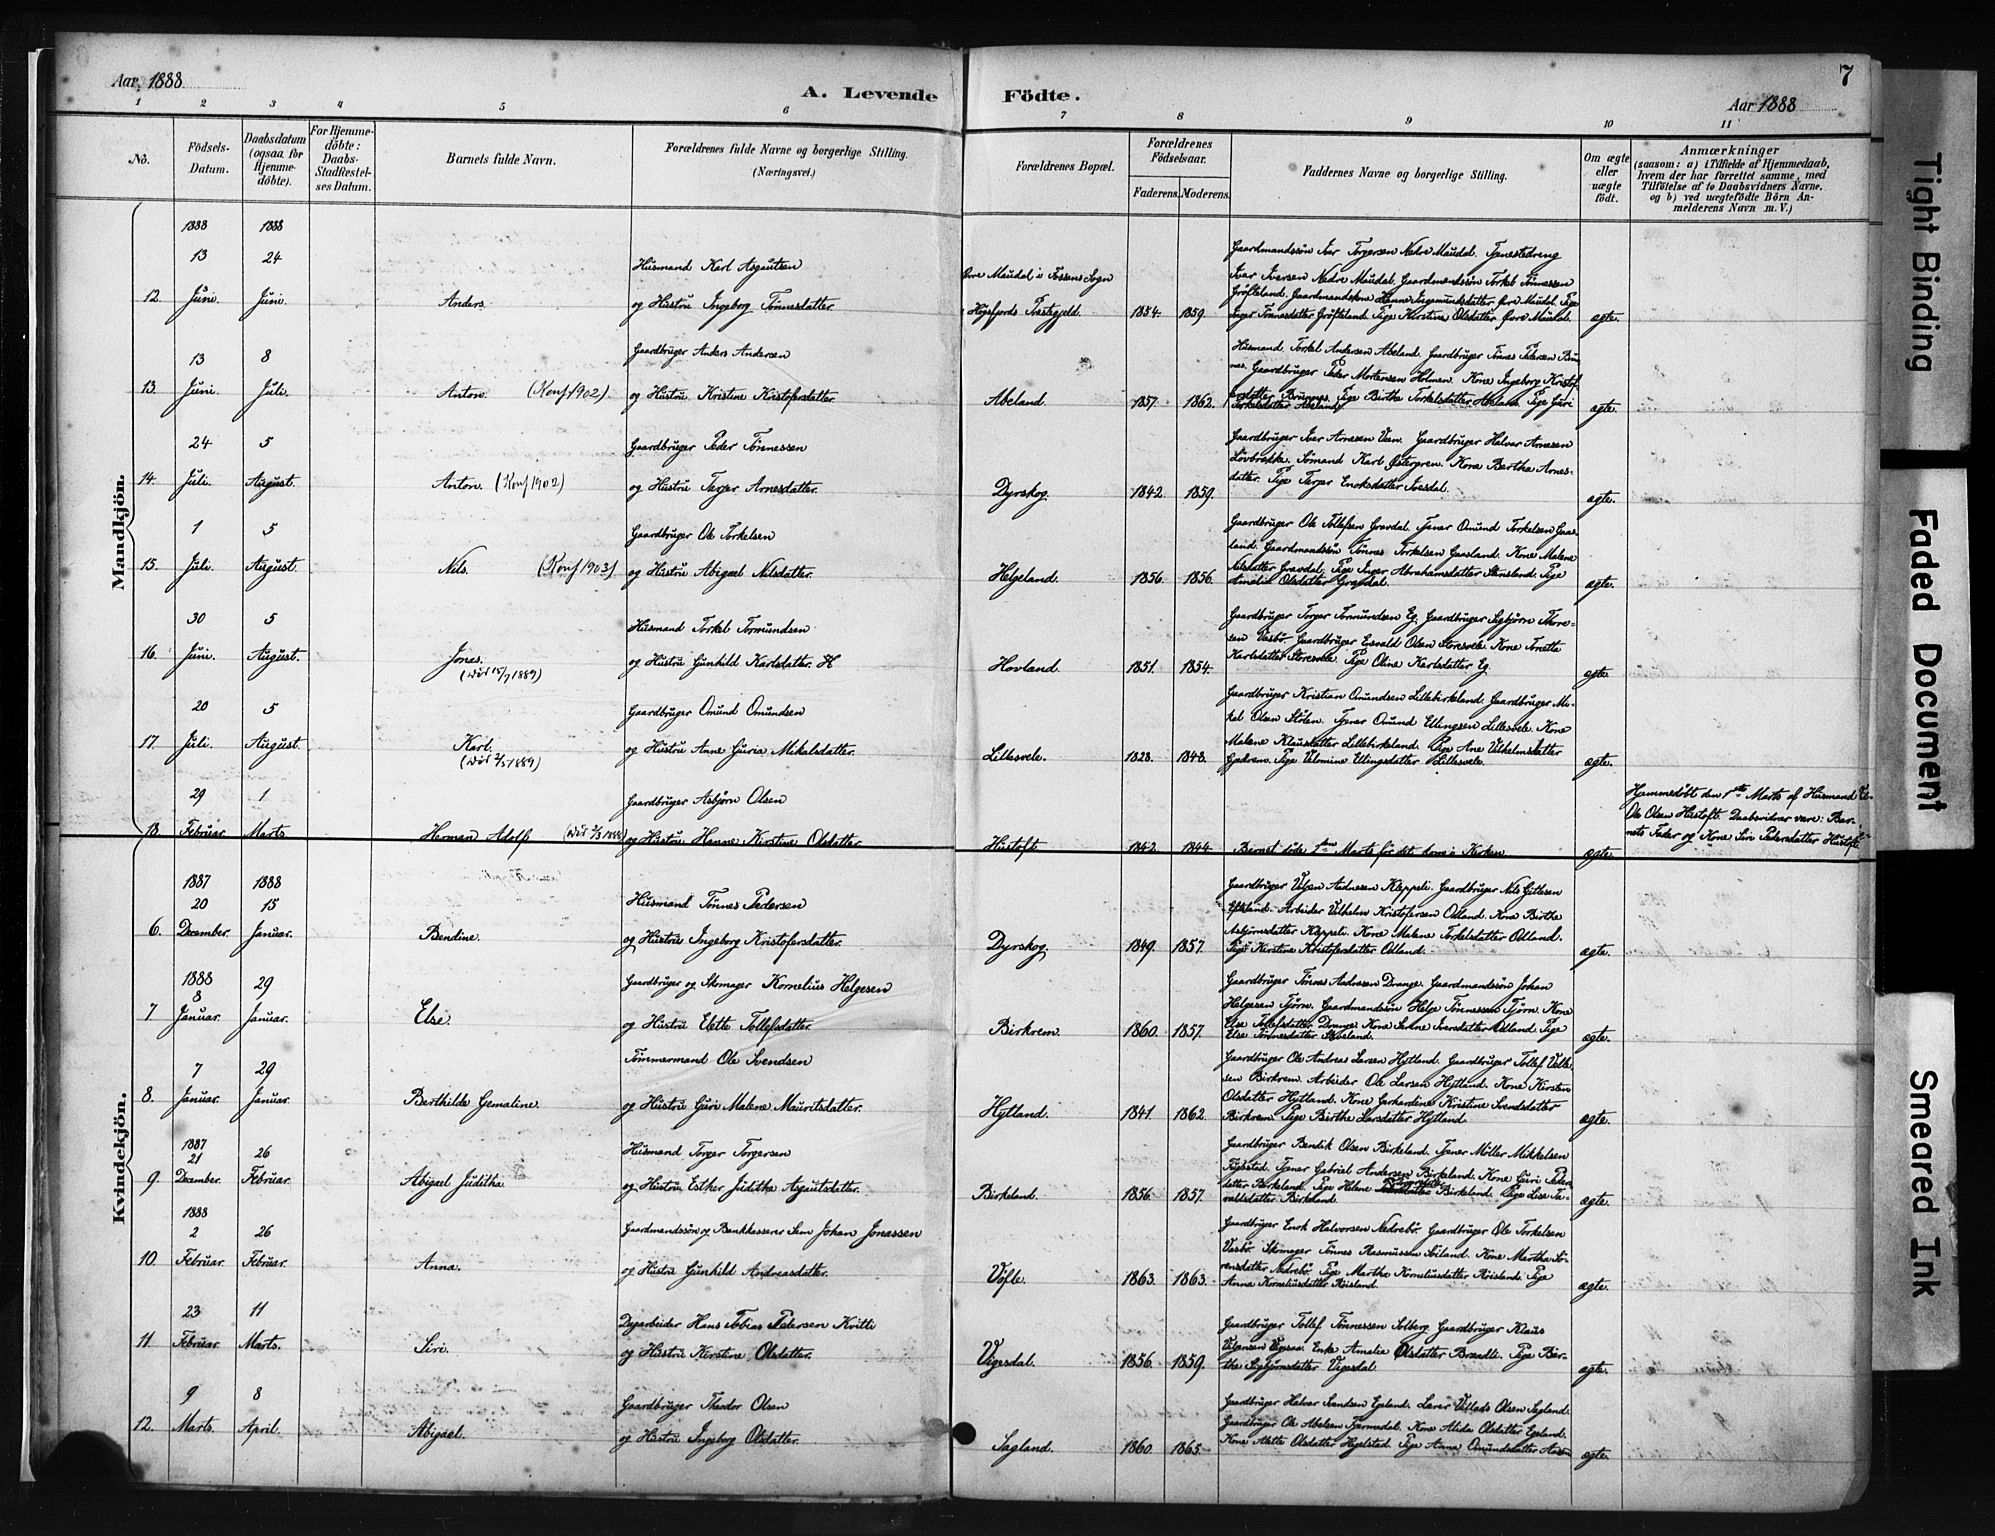 Aar 1888
A. Levende
Födte.
Aar 1888
7
1 2 3 4 5 6 7 8 9 10 11
No.
Födsels-
Datum.
Daabsdatum
(ogsaa for
Hjemme-
döbte).
For Hjemme-
döbte:
Daabs-
Stadfæstel-
ses Datum.
Barnets fulde Navn.
Forældrenes fulde Navne og borgerlige Stilling.
(Næringsvei.)
Forældrenes Bopæl.
Forældrenes
Födselsaar.
Faderens.
Moderens.
Faddernes Navne og borgerlige Stilling.
Om ægte
eller
uægte
födt.
Anmærkninger
(saasom: a) i Tilfælde af Hjemmedaab,
hvem der har forrettet samme, med
Tilföielse af to Daabsvidners Navne.
og b) ved uægtefödte Börn An-
melderens Navn m. V.)
Mandkjön.
1888 1888
13 24
12. Juni. Juni. Anders.
Husmand Karl Asgautsen
og Hustru Ingeborg Tönnesdatter.
Övre Maudal i Fossans Sogn
Högsfjords Præstegjeld. 1854. 1859.
Gaardmandssön Ivar Torgersen Nedre Maudal. Tjenestedreng
Ivar Iversen Nedre Maudal. Gaardmandssön Torkel Tönnessen
Gröfteland. Gaardmandskone Hanne Ingemundsdatter Övre Maudal. Pige
Inger Tönnesdatter Gröfteland. Pige Kirstine Olsdatter Övre Maudal.
ægte.
13 8
13. Juni. Juli. Anton. (Konf 1902)
Gaardbruger Anders Andersen
og Hustru Kristine Kristofersdatter.
Abeland. 1857. 1862.
Husmand Torkel Andersen Abeland. Gaardbruger Tönnes Pedersen Brün-
nes. Gaardbruger Peder Mortensen Holmen. Kone Ingeborg Kristof-
fersdatter Brünnes. Pige Birthe Torkelsdatter Abeland. Pige Guri
Torkelsdatter Abeland.
ægte.
24 5
14. Juli. August. Anton. (Konf 1902)
Gaardbruger Peder Tönnessen
og Hustru Terjer Arnesdatter.
Dyrskog. 1842. 1859.
Gaardbruger Ivar Arnesen Veen. Gaardbruger Halvor Arnesen
Lövbrække. Sömand Karl Östergren. Kone Bertha Arnes-
datter. Pige Terjer Enoksdatter Ivesdal.
ægte.
1 5
15. Juli. August. Nils. (Konf 1903)
Gaardbruger Ole Torkelsen
og Hustru Abigael Nilsdatter.
Helgeland. 1856. 1856.
Gaardbruger Ole Tollefsen Gravdal. Tjener Omund Torkelsen Gaas-
land. Gaardmandssön Tönnes Torkelsen Gaasland. Kone Malene
Nilsdatter Gravdal. Pige Inger Abrahamsdatter Stensland. Pige
Amalie Olsdatter Gravdal.
ægte.
30 5
16. Juni. August. Jonas.
(död 15/7 1889)
Husmand Torkel Tormundsen
og Hustru Gunhild Karlsdatter. H
Hovland. 1851. 1854.
Gaardbruger Torger Tormundsen Eg. Gaardbruger Sigbjörn Thore-
sen Vasbö. Gaardbruger Enevald Olsen Storesvele. Kone Tonetta
Karlsdatter Storesvele. Pige Oline Karlsdatter Eg.
ægte.
20 5
17. Juli. August. Karl.
(död 2/5 1889)
Gaardbruger Omund Omundsen
og Hustru Anne Guria Mikalsdatter.
Lillesvele. 1828. 1848.
Gaardbruger Kristian Omundsen Lillebirkeland. Gaardbruger Mi-
kal Olsen Stölen. Tjener Omund Ellingsen Lillesvele. Kone
Malene Klausdatter Lillebirkeland. Pige Ane Vilhelmsdatter
Gadrem. Pige Velomine Ellingsdatter Lillesvele.
ægte.
29 1
18. Februar. Marts. Herman Adolf (död 1/3 1888)
Gaardbruger Asbjörn Olsen
og Hustru Hanne Kirstine Olsdatter.
Hustoft. 1842. 1844.
Barnet döde 1ste Marts för det kom i Kirken
ægte.
Hjemmedöbt den 1ste Marts af Husmand
Ole Olsen Hustoft. Daabsvidner vare: Bar-
nets Fader og Kone Siri Pedersdatter Hustoft
Kvindekjön.
1887 1888
20 15
6. December. Januar. Bendine.
Husmand Tönnes Pedersen
og Hustru Ingeborg Kristofersdatter.
Dyrskog. 1849. 1857.
Gaardbruger Viljen Andresen Kleppeli. Gaardbruger Nils Gitlesen
Eftesland. Arbeider Vilhelm Kristofersen Odland. Kone Birthe
Asbjörnsdatter Kleppeli. Kone Malene Torkelsdatter Odland.
Pige Kirstine Kristofersdatter Odland.
ægte.
1888
8 29
7. Januar. Januar. Else.
Gaardbruger og Skomager Kornelius Helgesen
og Hustru Elette Tollefsdatter.
Birkrem. 1860. 1857.
Gaardbruger Tönnes Andreasen Drange. Gaardmandssön Johan
Helgesen Tjörn. Gaardmandssön Helge Tönnessen Tjörn. Kone
Else Tollefsdatter Drange. Kone Sunne Iversdatter Odland. Pige
Else Tönnesdatter Skeeland.
ægte.
7 29
8. Januar. Januar. Berthilde Gemaline.
Tömmermand Ole Svendsen
og Hustru Guri Malene Mauritsdatter.
Hytland. 1841. 1862.
Gaardbruger Ole Andreas Larsen Hytland. Gaardbruger Tollef Velle-
sen Birkrem. Arbeider Ole Larsen Hytland. Kone Kirsten
Olsdatter Hytland. Kone Gerhardine Kristine Svendsdatter
Birkrem. Pige Birthe Larsdatter Hytland.
ægte.
1887
21 26
9. December. Februar. Abigael Juditha.
Husmand Torger Torgersen
og Hustru Esther Juditha Asgautsdatter.
Birkeland. 1856. 1857.
Gaardbruger Bendik Olsen Birkeland. Tjener Möller Mikkelsen
Tjener Gabriel Andersen Birkeland. Kone Guri Peder-
datter Birkeland. Pige Helene Birkeland. Pige Lise Ta-
raldsdatter Birkeland.
ægte.
1888
2 26
10. Februar. Februar. Anna.
Gaardmandssön og Bankkasserer Sem Johan Jonassen
og Hustru Gunhild Andreasdatter.
Vöfle. 1863. 1863.
Gaardbruger Enok Halvorsen Nedrebö. Gaardbruger Ole Torkelsen
Vasbö. Skomager Tönnes Rasmussen Soiland. Kone Martha Sö-
rensdatter Nedrebö. Pige Martha Korneliusdatter Röisland. Pige
Anna Korneliusdatter Röisland.
ægte.
23 11
11. Februar. Marts. Siri.
Dagarbeider Hans Tobias Pedersen Kvitti
og Hustru Kirstine Olsdatter.
Vigesdal. 1856. 1859.
Gaardbruger Tollef Tönnessen Solberg. Gaardbruger Klaus
Enke Amalie Olsdatter Brædti. Pige Ber-
the Sigbjörnsdatter Vigesdal.
ægte.
9 8
12. Marts. April. Abigael.
Gaardbruger Theodor Olsen
og Hustru Ingeborg Olsdatter.
Sagland. 1860. 1865.
Gaardbruger Halvor Sandsen Egeland. Lærer Villads Olsen Sagland.
Gaardbruger Ole Abelsen Tjørmodal. Kone Alida Olsdatter Egeland.
Kone Alette Olsdatter Hegelstad. Pige Anna Omundsdatter
ægte.
Tight Binding
Faded Document
Smeared Ink